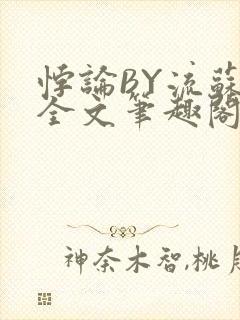 悖論BY流蘇
全文筆趣閣
神奈木智,桃月